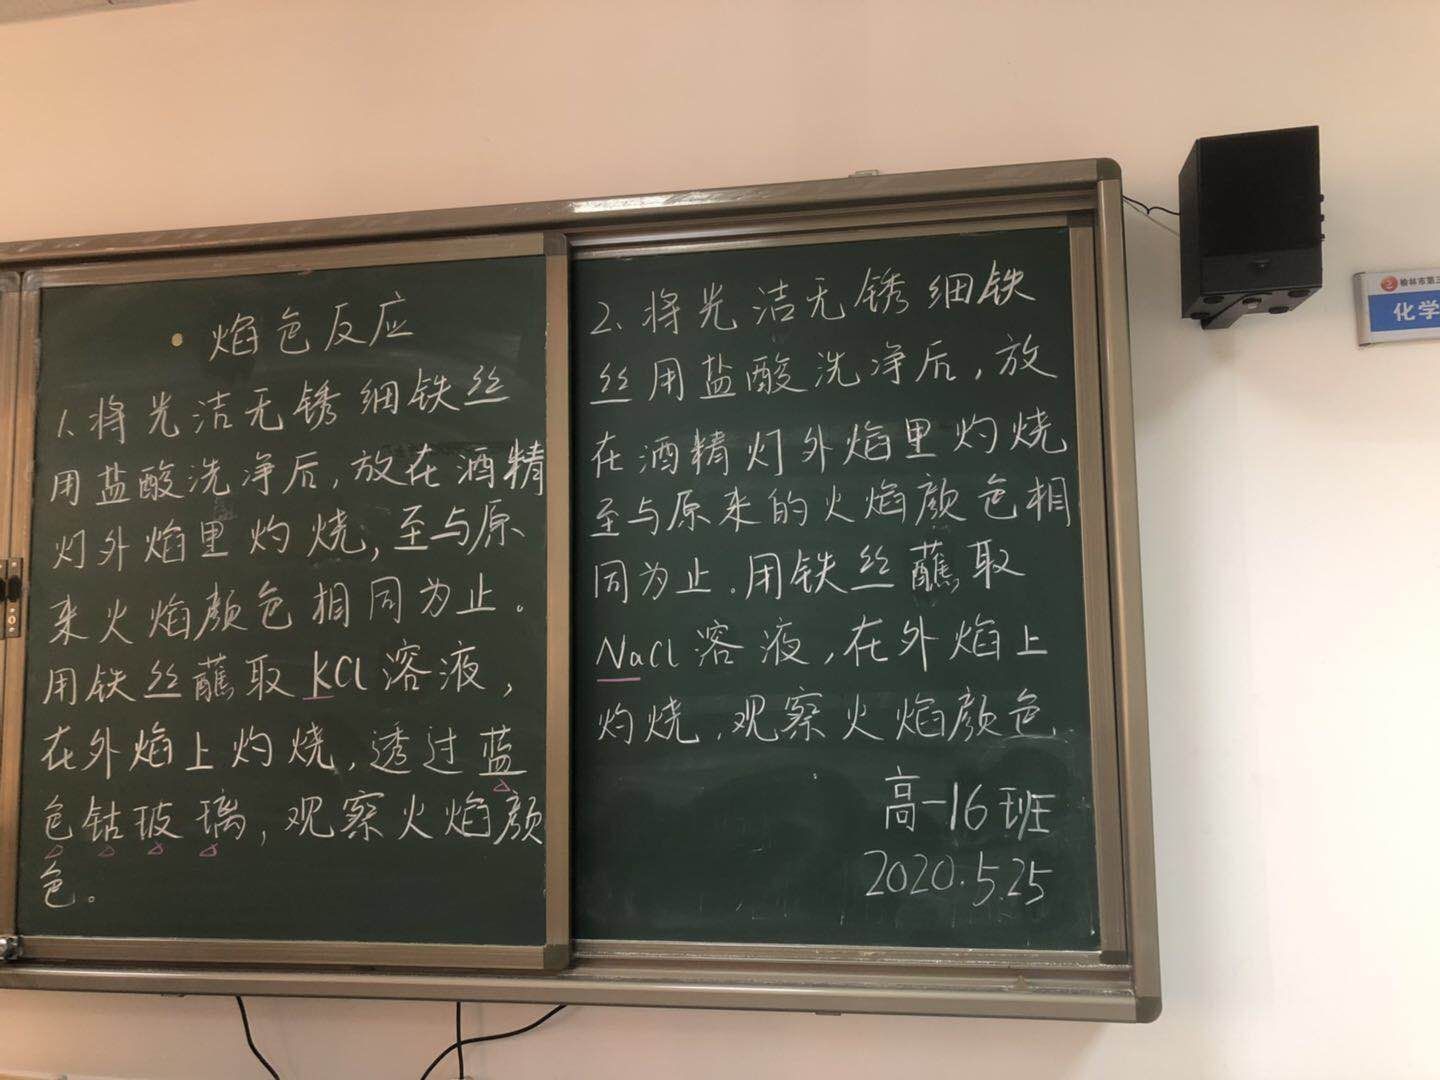 焰色反应
1、将光洁无锈细铁丝
用盐酸洗净后，放在酒精
灯外焰里灼烧，至与原
来火焰颜色相同为止。
用铁丝蘸取KCl溶液，
在外焰上灼烧，透过蓝
色钴玻璃，观察火焰颜
色。
2、将光洁无锈细铁
丝用盐酸洗净后，放
在酒精灯外焰里灼烧
至与原来的火焰颜色相
同为止．用铁丝蘸取
NaCl溶液，在外焰上
灼烧，观察火焰颜色
高一16班
2020.5.25
榆林市第三
化学